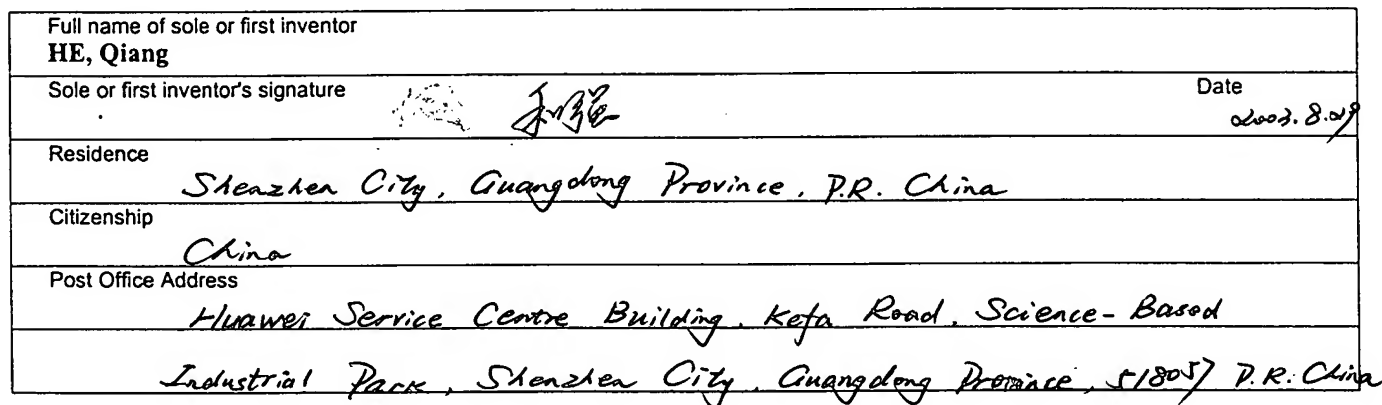 Full name of sole or first inventor
HE, Qiang
Sole or first inventor's signature
和强
Date
2003. 8. 29
Residence
Shenzhen City, Guangdong Province, P.R. China
Citizenship
China
Post Office Address
Huawei Service Centre Building, Kefa Road, Science-Based
Industrial Park, Shenzhen City, Guangdong Province, 518057 P.R. China